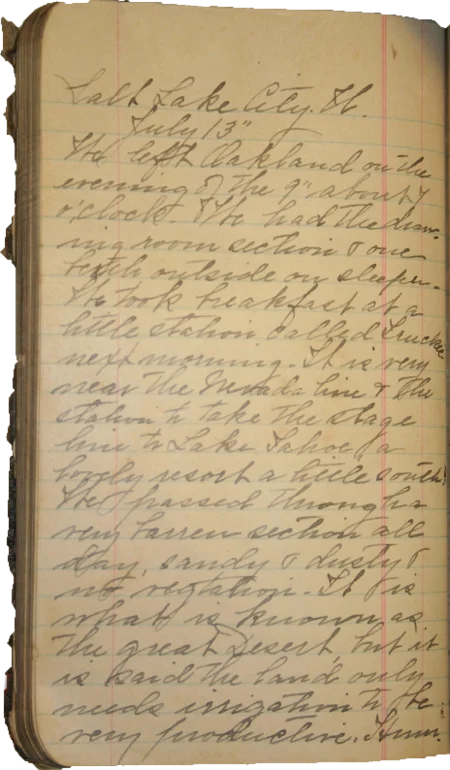 Salt Lake City. H.
July 13"
We left Oakland on the
evening of the 9" about 7
o'clock. We had the draw-
ing room section & one
berth outside on sleeper.
We took breakfast at a
little station called Truckee
next morning. It is very
near the Nevada line & the
station to take the stage
line to Lake Tahoe, a
lovely resort a little south.
We passed through a
very barren section all
day, sandy & dusty &
no vegtation. It is
what is known as
the great Desert, but it
is said the land only
needs irrigation to be
very productive. Hum-